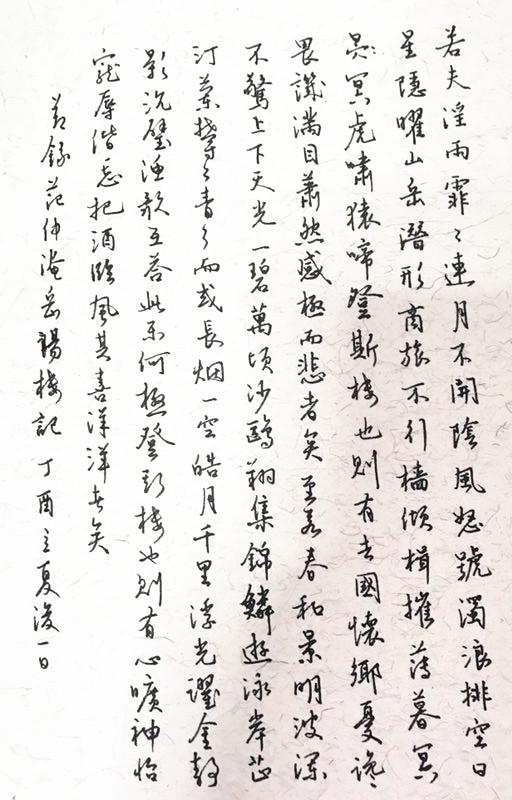 若夫淫雨霏〻連月不開陰風怒號濁浪排空日
星隱曜山岳潛形商旅不行檣傾楫摧薄暮冥
冥虎嘯猿啼登斯樓也則有去國懷鄉憂讒
畏譏滿目蕭然感極而悲者矣至若春和景明波瀾
不驚上下天光一碧萬頃沙鷗翔集錦鱗遊泳岸芷
汀蘭鬱〻青〻而或長烟一空皓月千里浮光躍金静
影沉璧漁歌互答此樂何極登斯樓也則有心曠神怡
寵辱偕忘把酒臨風其喜洋洋者矣
節錄范仲淹岳陽樓記 丁酉立夏後一日